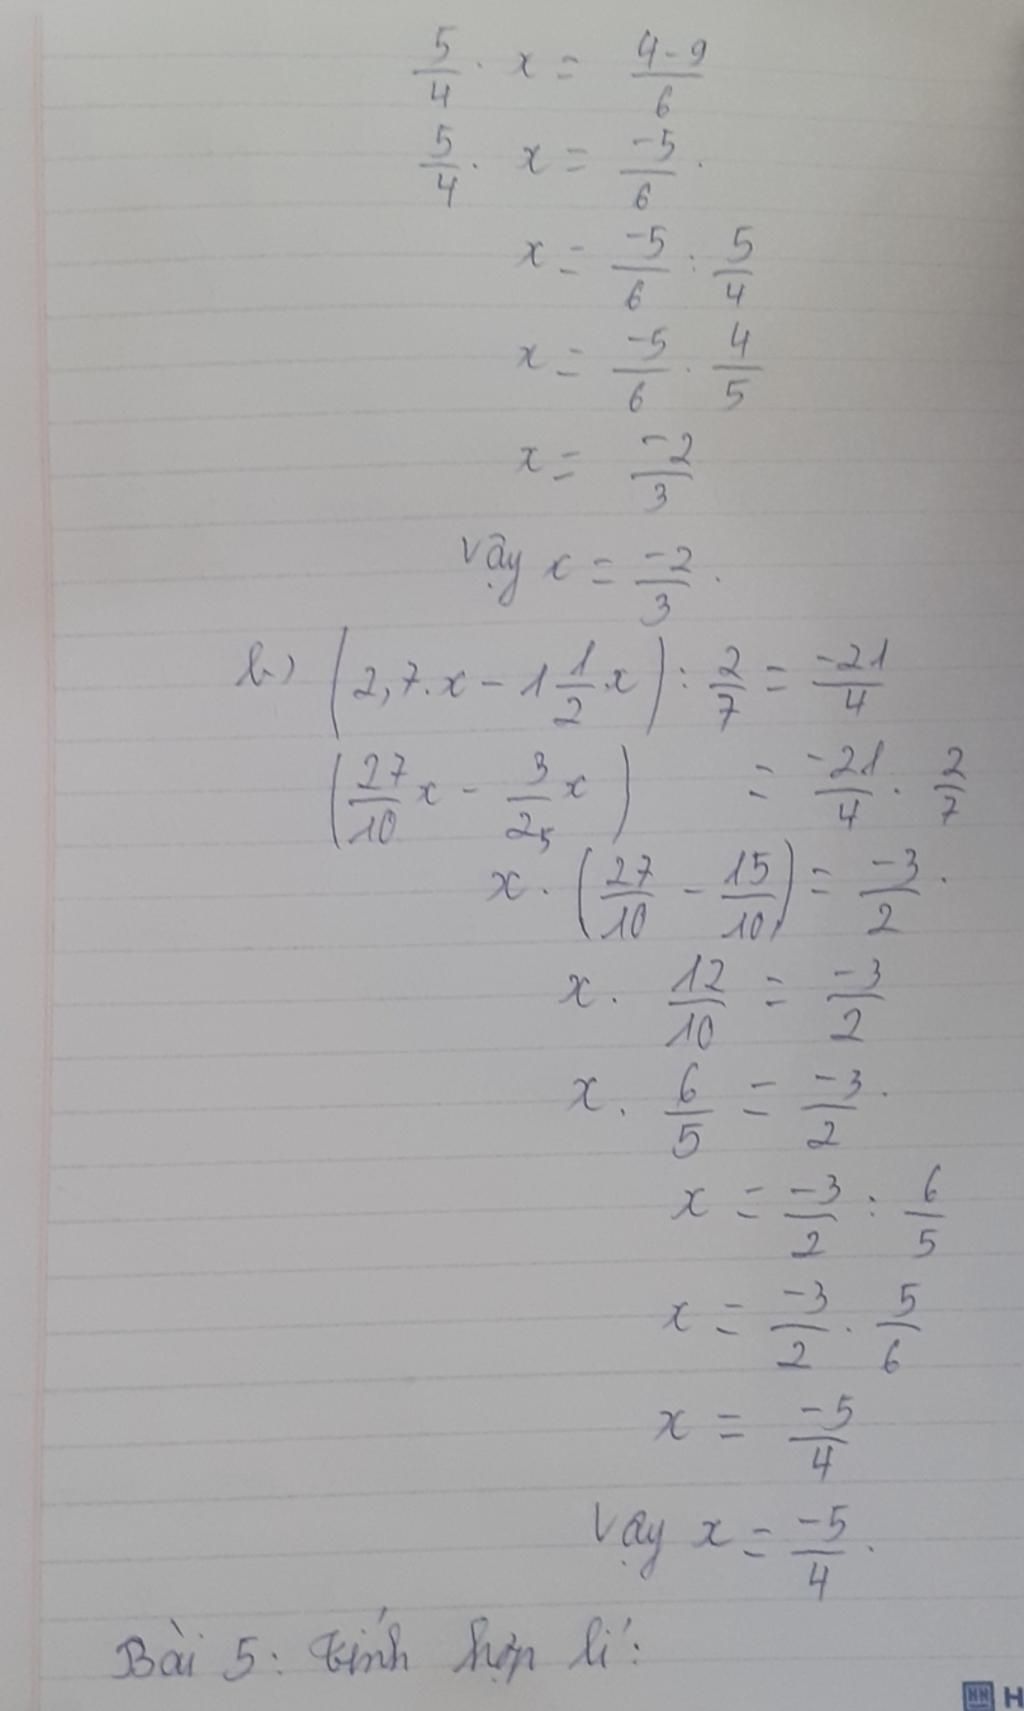 5/4 . x = 4-9/6
5/4 . x = -5/6 .
x = -5/6 : 5/4
x = -5/6 . 4/5
x = -2/3
Vậy x = -2/3 .
b) (2,7.x - 1 1/2 x) : 2/7 = -21/4
(27/10 x - 3/2 5 x) = -21/4 . 2/7
x . (27/10 - 15/10) = -3/2 .
x . 12/10 = -3/2
x . 6/5 = -3/2 .
x = -3/2 : 6/5
x = -3/2 . 5/6
x = -5/4
Vậy x = -5/4 .
Bài 5: tính hợp lí:
H